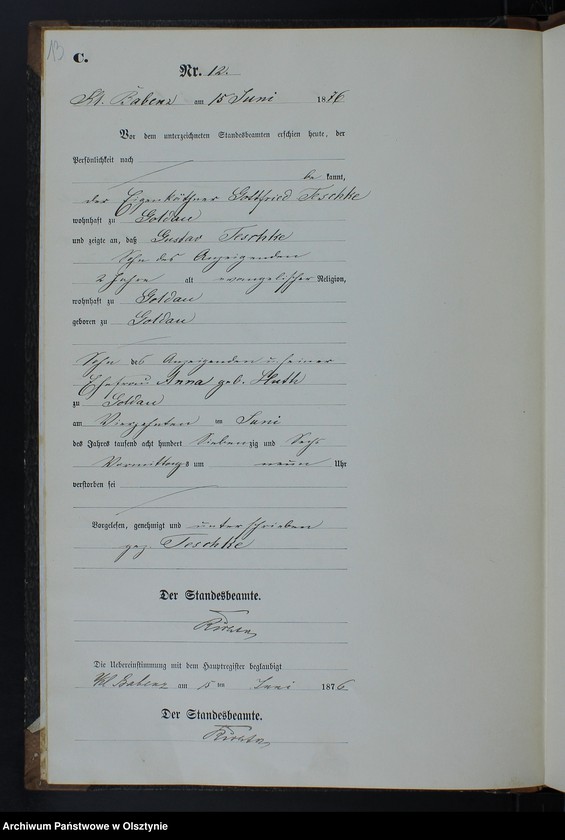 13
C.
Nr. 12.
Kl. Babenz am 15 Juni 1876
Vor dem unterzeichneten Standesbeamten erschien heute, der
Persönlichkeit nach
be kannt,
der Eigenkäthner Gottfried Teschke
wohnhaft zu Goldau
und zeigte an, daß Gustav Teschke
Sohn des Anzeigenden
2 Jahre alt evangelischer Religion,
wohnhaft zu Goldau
geboren zu Goldau
Sohn des Anzeigenden u. seiner
Ehefrau Anna geb. Huth
zu Goldau
am Vierzehnten ten Juni
des Jahres tausend acht hundert Siebenzig und Sechs
Vormittags um neun Uhr
verstorben sei
Vorgelesen, genehmigt und unterschrieben
gez. Teschke
Der Standesbeamte.
Die Uebereinstimmung mit dem Hauptregister beglaubigt
Kl. Babenz am 15 ten Juni 1876
Der Standesbeamte.
Archiwum Państwowe w Olsztynie